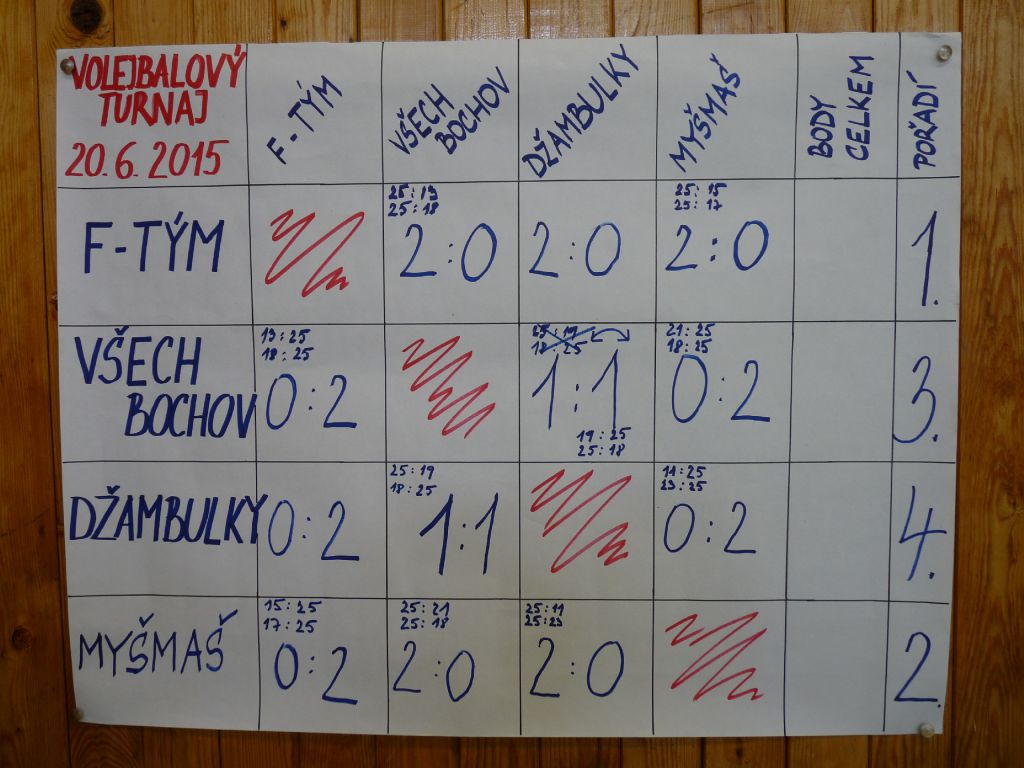 VOLEJBALOVÝ
TURNAJ
20.6.2015
F-TÝM
VŠECH
BOCHOV
DŽAMBULKY
MYŠMAŠ
BODY
CELKEM
POŘADÍ
F-TÝM
25:19
25:18
2:0
2:0
25:15
25:17
2:0
1.
VŠECH
BOCHOV
19:25
18:25
0:2
25:19
18:25
1:1
19:25
25:18
21:25
18:25
0:2
3.
DŽAMBULKY
0:2
25:19
18:25
1:1
11:25
23:25
0:2
4.
MYŠMAŠ
15:25
17:25
0:2
25:21
25:18
2:0
25:11
25:23
2:0
2.